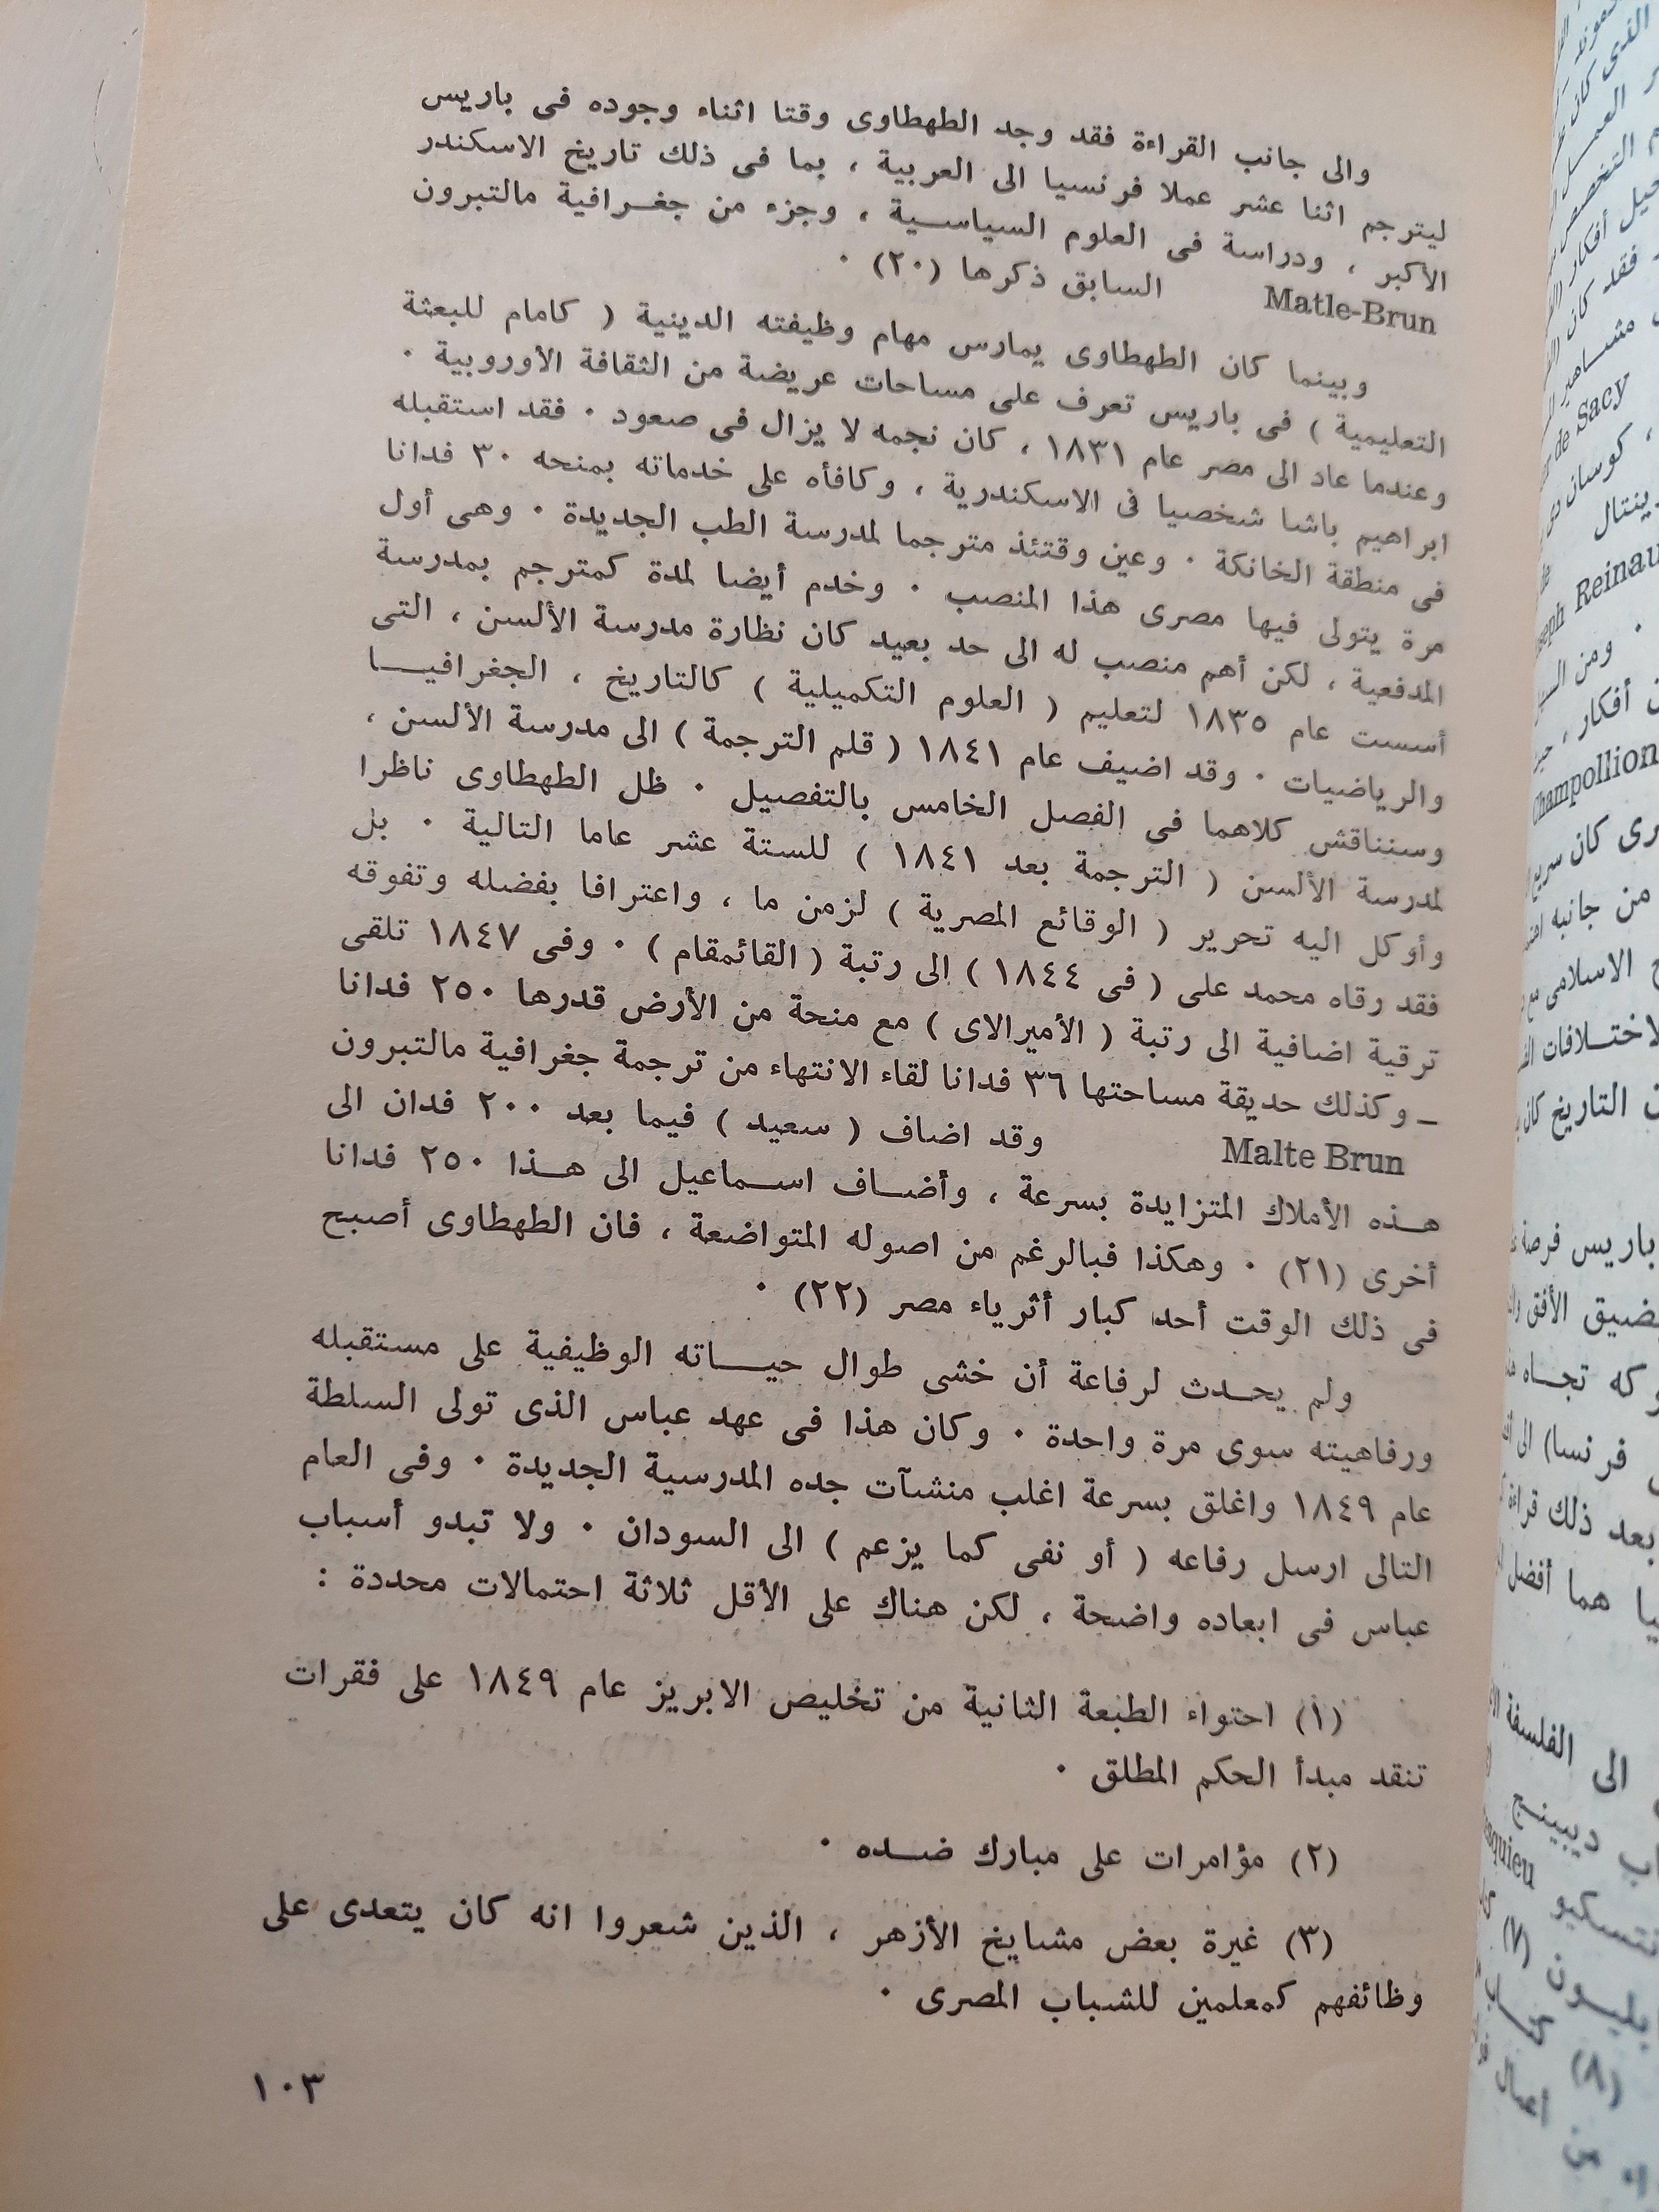 والى جانب القراءة فقد وجد الطهطاوى وقتا اثناء وجوده فى باريس
ليترجم اثنا عشر عملا فرنسيا الى العربية ، بما فى ذلك تاريخ الاسكندر
الأكبر ، ودراسة فى العلوم السياسية ، وجزء من جغرافية مالتبرون
Matle-Brun السابق ذكرها (٢٠) ٠
وبينما كان الطهطاوى يمارس مهام وظيفته الدينية ( كامام للبعثة
التعليمية ) فى باريس تعرف على مساحات عريضة من الثقافة الأوروبية ٠
وعندما عاد الى مصر عام ١٨٣١ ، كان نجمه لا يزال فى صعود ٠ فقد استقبله
ابراهيم باشا شخصيا فى الاسكندرية ، وكافأه على خدماته بمنحه ٣٠ فدانا
فى منطقة الخانكة ٠ وعين وقتئذ مترجما لمدرسة الطب الجديدة ٠ وهى أول
مرة يتولى فيها مصرى هذا المنصب ٠ وخدم أيضا لمدة كمترجم بمدرسة
المدفعية ، لكن أهم منصب له الى حد بعيد كان نظارة مدرسة الألسن ، التى
أسست عام ١٨٣٥ لتعليم ( العلوم التكميلية ) كالتاريخ ، الجغرافيا
والرياضيات ٠ وقد اضيف عام ١٨٤١ ( قلم الترجمة ) الى مدرسة الألسن ،
وسنناقش كلاهما فى الفصل الخامس بالتفصيل ٠ ظل الطهطاوى ناظرا
لمدرسة الألسن ( الترجمة بعد ١٨٤١ ) للستة عشر عاما التالية ٠ بل
وأوكل اليه تحرير ( الوقائع المصرية ) لزمن ما ، واعترافا بفضله وتفوقه
فقد رقاه محمد على ( فى ١٨٤٤ ) الى رتبة ( القائمقام ) ٠ وفى ١٨٤٧ تلقى
ترقية اضافية الى رتبة ( الأميرالاى ) مع منحة من الأرض قدرها ٢٥٠ فدانا
_ وكذلك حديقة مساحتها ٣٦ فدانا لقاء الانتهاء من ترجمة جغرافية مالتبرون
Malte Brun وقد اضاف ( سعيد ) فيما بعد ٢٠٠ فدان الى
هذه الأملاك المتزايدة بسرعة ، وأضاف اسماعيل الى هذا ٢٥٠ فدانا
أخرى (٢١) ٠ وهكذا فبالرغم من اصوله المتواضعة ، فان الطهطاوى أصبح
فى ذلك الوقت أحد كبار أثرياء مصر (٢٢) ٠
ولم يحدث لرفاعة أن خشى طوال حياته الوظيفية على مستقبله
ورفاهيته سوى مرة واحدة ٠ وكان هذا فى عهد عباس الذى تولى السلطة
عام ١٨٤٩ واغلق بسرعة اغلب منشآت جده المدرسية الجديدة ٠ وفى العام
التالى ارسل رفاعه ( أو نفى كما يزعم ) الى السودان ٠ ولا تبدو أسباب
عباس فى ابعاده واضحة ، لكن هناك على الأقل ثلاثة احتمالات محددة :
(١) احتواء الطبعة الثانية من تخليص الابريز عام ١٨٤٩ على فقرات
تنقد مبدأ الحكم المطلق ٠
(٢) مؤامرات على مبارك ضده ٠
(٣) غيرة بعض مشايخ الأزهر ، الذين شعروا انه كان يتعدى على
وظائفهم كمعلمين للشباب المصرى ٠
١٠٣
de Sacy
Reinau
Champollion